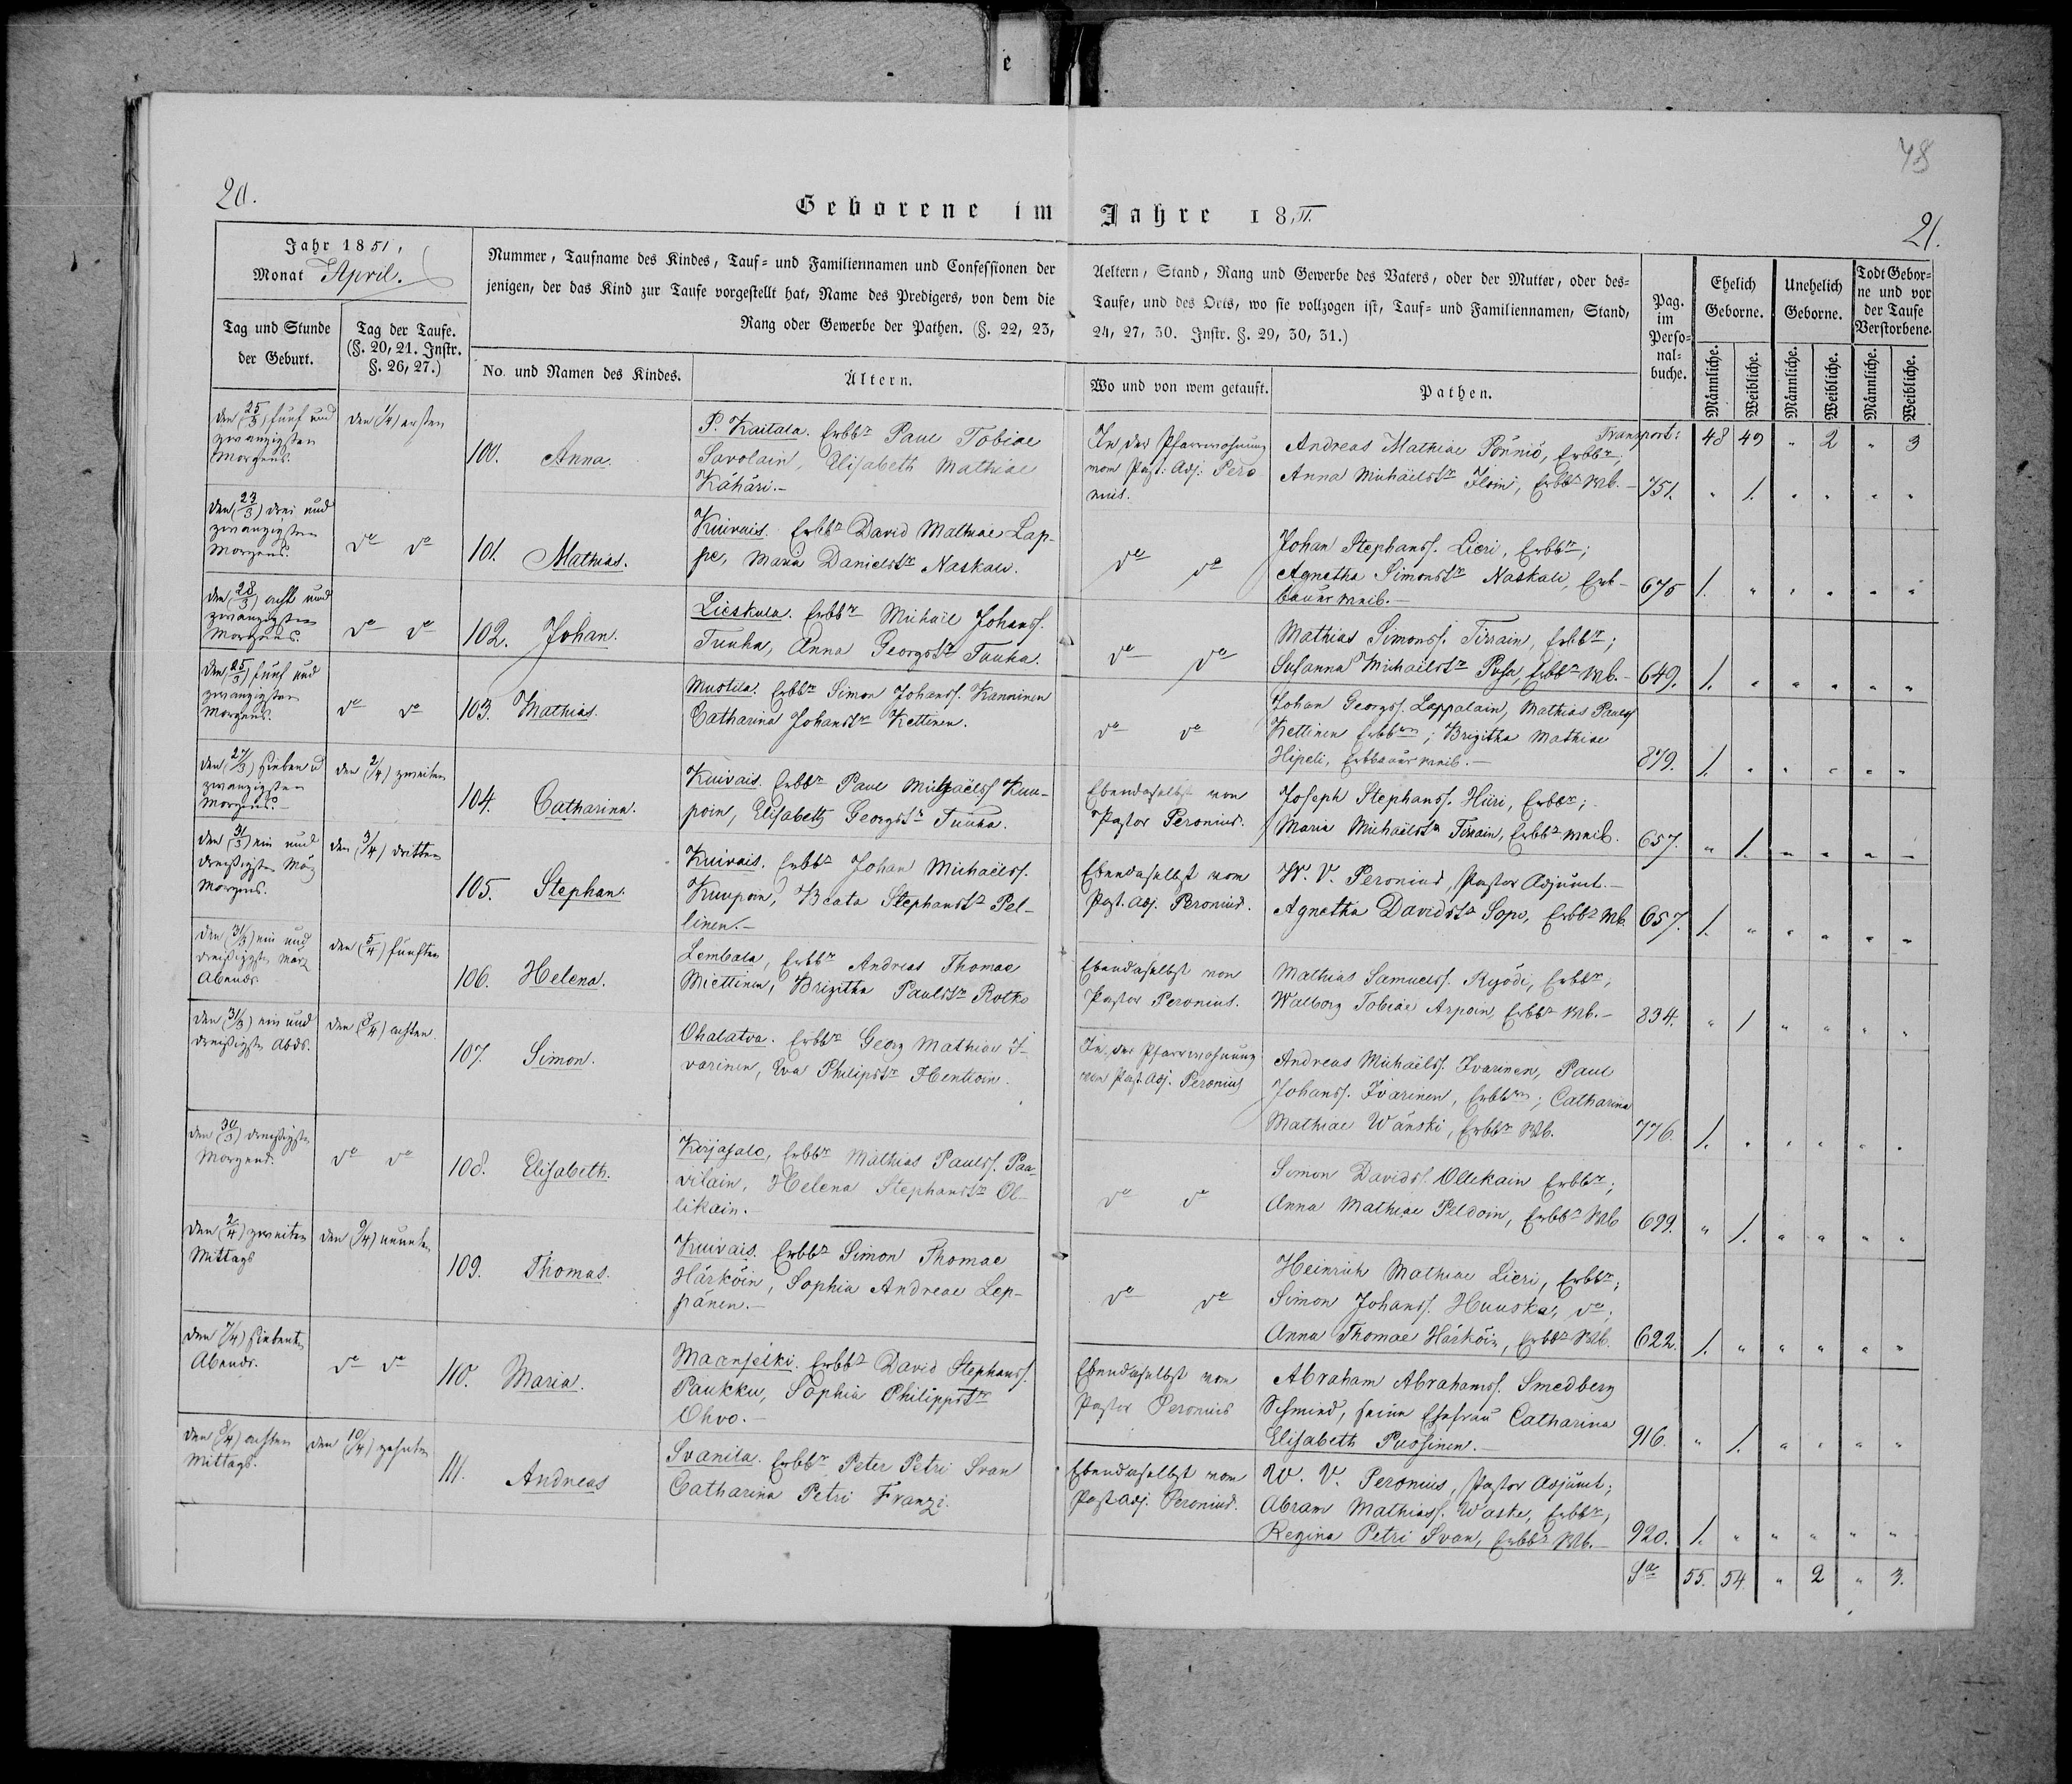 e
48
20.
Geborene im Jahre 18,II.
21.
Jahr 1851,
Monat April.
Tag und Stunde
der Geburt.
Tag der Taufe.
(§. 20, 21. Instr.
§. 26, 27.)
Nummer, Taufname des Kindes, Tauf- und Familiennamen und Confessionen der
jenigen, der das Kind zur Taufe vorgestellt hat, Name des Predigers, von dem die
Rang oder Gewerbe der Pathen. (§. 22, 23,
No. und Namen des Kindes.
Ältern.
Aeltern, Stand, Rang und Gewerbe des Vaters, oder der Mutter, oder des-
Taufe, und des Orts, wo sie vollzogen ist, Tauf- und Familiennamen, Stand,
24, 27, 30. Instr. §. 29, 30, 31.)
Wo und von wem getauft.
Pathen.
Pag.
im
Perso-
nal-
buche.
Ehelich
Geborne.
Unehelich
Geborne.
Todt Gebor-
ne und vor
der Taufe
Verstorbene.
Männliche.
Weibliche.
Männliche.
Weibliche.
Männliche.
Weibliche.
Transport: 48 49 " 2 " 3
den (25/3) fünf und
zwanzigsten
Morgens.
den (1/4) ersten
100. Anna.
P. Kaitala. Erbbr Paul Tobiae
Savolain, Elisabeth Mathiae
Kähäri.-
In der Pfarrwohnung
vom Past. Adj. Pero
nius.
Andreas Mathiae Pönniö, Erbbr;
Anna Michaëlstr Iloin, Erbbr Wb.-
751. " 1. " " " "
den (23/3) drei und
zwanzigsten
Morgens.
do do
101. Mathias.
Kuivais. Erbbr David Mathiae Lap-
pe, Maria Danielstr Naskali.
do do
Johan Stephanss. Lieri, Erbbr;
Agnetha Simonstr Naskali, Erb-
bauer weib.-
675 1. " " " " "
den (28/3) acht und
zwanzigsten
Morgens.
do do
102. Johan.
Lieskula. Erbbr Michaël Johanss.
Tuuha, Anna Georgstr Tauha.
do do
Mathias Simonss. Tirrain, Erbbr;
Susanna Michaëlstr Pusa, Erbbr Wb.-
649. 1. " " " " "
den (25/3) fünf und
zwanzigsten
Morgens.
do do
103. Mathias.
Mustila. Erbbr Simon Johanss. Kanninen
Catharina Johanstr Kettinen.
do do
Johan Georgss. Lappalain, Mathias Paulss
Kettinen Erbbrn; Brigitha Mathiae
Hipeli, Erbbauer weib.-
879. 1. " " " " "
den (27/3) sieben u
zwanzigsten
Morgens.-
den (2/4) zweiten
104. Catharina.
Kuivais. Erbbr Paul Michaëlss Kuu-
poin, Elisabeth Georgstr Tuuha.
Ebendaselbst von
Pastor Peronius.
Joseph Stephanss. Hiiri, Erbbr;
Maria Michaëlstr Tirrain, Erbbr weib.
657. " 1. " " " "
den (31/3) ein und
dreißigsten März
Morgens.
den (3/4) dritten
105. Stephan.
Kuivais. Erbbr Johan Michaëlss.
Kuupoin, Beata Stephanstr Pel-
linen.-
Ebendaselbst vom
Past. Adj. Peronius.
W. V. Peronius, Pastor Adjunct.-
Agnetha Davidstr Sopo, Erbbr Wb.
657. 1. " " " " "
den (31/3) ein und
dreißigsten März
Abends.
den (5/4) fünften
106. Helena.
Lembala, Erbbr Andreas Thomae
Miettinen, Brigitha Paulstr Rotko
Ebendaselbst von
Pastor Peronius.
Mathias Samuelss. Ryödi, Erbbr;
Walborg Tobiae Arpoin, Erbbr Wb.-
834. " 1 " " " "
den (31/3) ein und
dreißigsten Abds.
den (8/4) achten.
107. Simon.
Ohalatva. Erbbr Georg Mathiae I-
varinen, Eva Philipstr Hentoin.
In der Pfarrwohnung
vom Past. Adj. Peronius
Andreas Michaëlss. Ivarinen, Paul
Johanss. Ivarinen, Erbbrn; Catharina
Mathiae Wänski, Erbbr Wb.
776. 1. " " " " "
den (30/3) dreißigsten
Morgens.
do do
108. Elisabeth.
Korjasalo, Erbbr Mathias Paulss. Paa-
vilain, Helena Stephanstr Ol-
likain.
do do
Simon Davidss. Ollikain Erbbr;
Anna Mathiae Peldoin, Erbbr Wb
699. " 1. " " " "
den (2/4) zweiten
Mittags
den (9/4) neunten
109. Thomas.
Kuivais. Erbbr Simon Thomae
Härköin, Sophia Andreae Lep-
pänen.-
do do
Heinrich Mathiae Lieri, Erbbr;
Simon Johanss. Huuska, do;
Anna Thomae Härköin, Erbbr Wb.
622. 1. " " " " "
den (7/4) siebenten
Abends.
do do
110. Maria.
Maanselki. Erbbr David Stephanss.
Paukku, Sophia Philippstr
Ohvo.-
Ebendaselbst von
Pastor Peronius
Abraham Abrahamss. Smedberg
Schmied, seine Ehefrau Catharina
Elisabeth Pussinen.-
916. " 1. " " " "
den (8/4) achten
Mittags.
den (10/4) zehnten
111. Andreas
Svanila. Erbbr Peter Petri Svan
Catharina Petri Franzi.
Ebendaselbst vom
Past. Adj. Peronius.
W. V. Peronius, Pastor Adjunct;
Abram Mathiass. Waske, Erbbr,
Regina Petri Svan, Erbbr Wb.-
920. 1. " " " " "
Sa 55. 54 " 2 " 3.